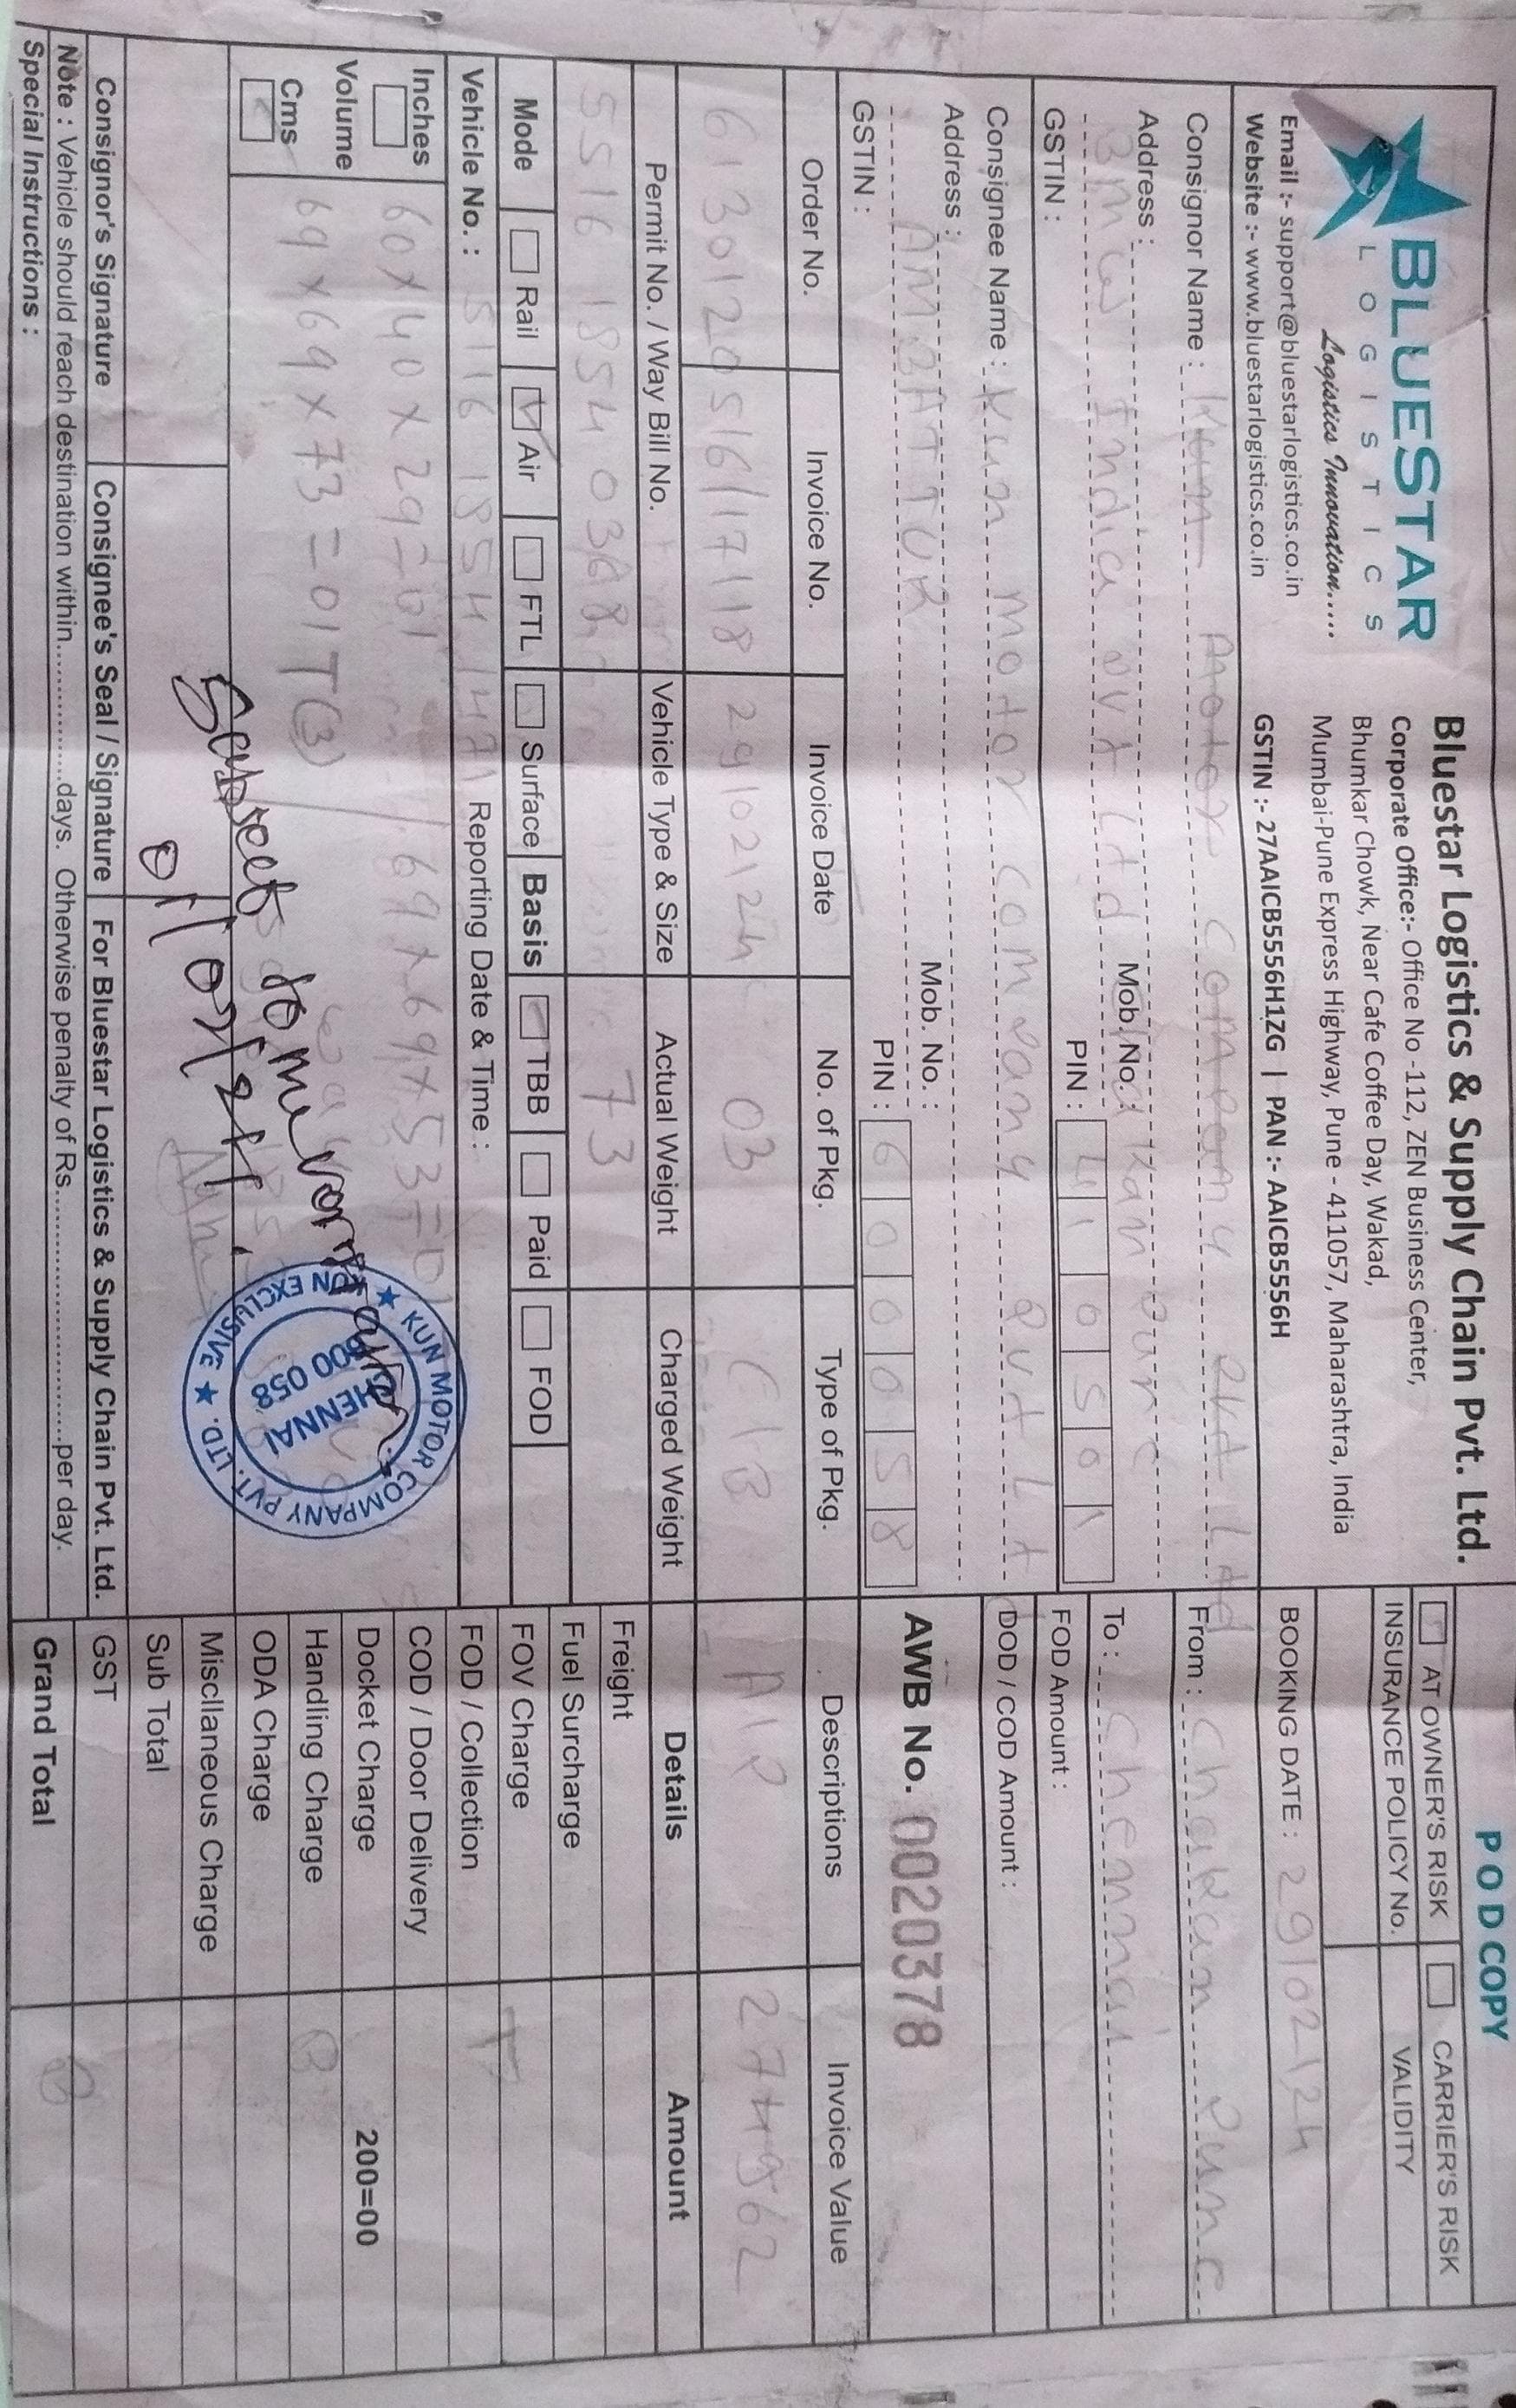 BLUESTAR
LOGISTICS
Logistics Innovation.....
Email :- support@bluestarlogistics.co.in
Website :- www.bluestarlogistics.co.in
Bluestar Logistics & Supply Chain Pvt. Ltd.
Corporate Office:- Office No -112, ZEN Business Center,
Bhumkar Chowk, Near Cafe Coffee Day, Wakad,
Mumbai-Pune Express Highway, Pune - 411057, Maharashtra, India
GSTIN :- 27AAICB5556H1ZG | PAN :- AAICB5556H
POD COPY
AT OWNER'S RISK CARRIER'S RISK
INSURANCE POLICY No. VALIDITY
BOOKING DATE : 29/02/24
Consignor Name : Kun Motor Company Pvt Ltd
Address :
BMW India Pvt Ltd Chakan Pune
Mob. No. :
PIN : 410501
GSTIN :
From : Chakan Pune
To : Chennai
FOD Amount :
DOD / COD Amount :
Consignee Name : Kun Motor Company Pvt Lt
Address :
AMBATTUR
Mob. No. :
PIN : 600058
GSTIN :
AWB No. 0020378
Order No. Invoice No. Invoice Date No. of Pkg. Type of Pkg. Descriptions Invoice Value
6130120516/17/18 29/02/24 03 C/B A/P 274962
Permit No. / Way Bill No. Vehicle Type & Size Actual Weight Charged Weight Details Amount
5516 1854 0368 73
Mode Rail Air FTL Surface Basis TBB Paid FOD
Vehicle No. : 5116 1854 1471 Reporting Date & Time :
Inches
Volume
Cms
60x40x29=01 69x69x53=01
69x69x73=01 T(3)
Subject to
01/03/24
KUN MOTOR COMPANY PVT. LTD.
KUN EXCLUSIVE
CHENNAI
600 058
Freight
Fuel Surcharge
FOV Charge
FOD / Collection
COD / Door Delivery
Docket Charge 200=00
Handling Charge
ODA Charge
Miscllaneous Charge
Sub Total
GST
Grand Total
T
B
B
Consignor's Signature Consignee's Seal / Signature For Bluestar Logistics & Supply Chain Pvt. Ltd.
Note : Vehicle should reach destination within................days. Otherwise penalty of Rs..............................per day.
Special Instructions :